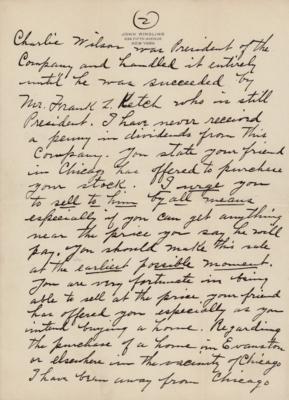 2
JOHN RINGLING
636 FIFTH AVENUE
NEW YORK
Charlie Wilson was President of the
Company and handled it entirely
until he was succeeded by
Mr. Frank L. Ketch who is still
President. I have never received
a penny in dividends from this
Company. You state your friend
in Chicago has offered to purchase
your stock. I urge you
to sell to him by all means
especially if you can get anything
near the price you say he will
pay. You should make this sale
at the earliest possible moment.
You are very fortunate in being
able to sell at the price your friend
has offered you especially as you
intend buying a home. Regarding
the purchase of a home in Evanston
or elsewhere in the vicinity of Chicago
I have been away from Chicago